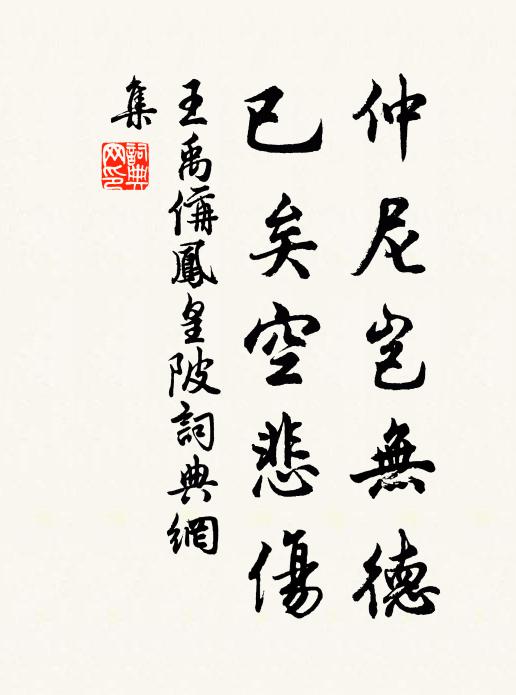 仲尼豈無德
已矣空悲傷
王禹偁鳳皇陂詞典網
集
詞典网印